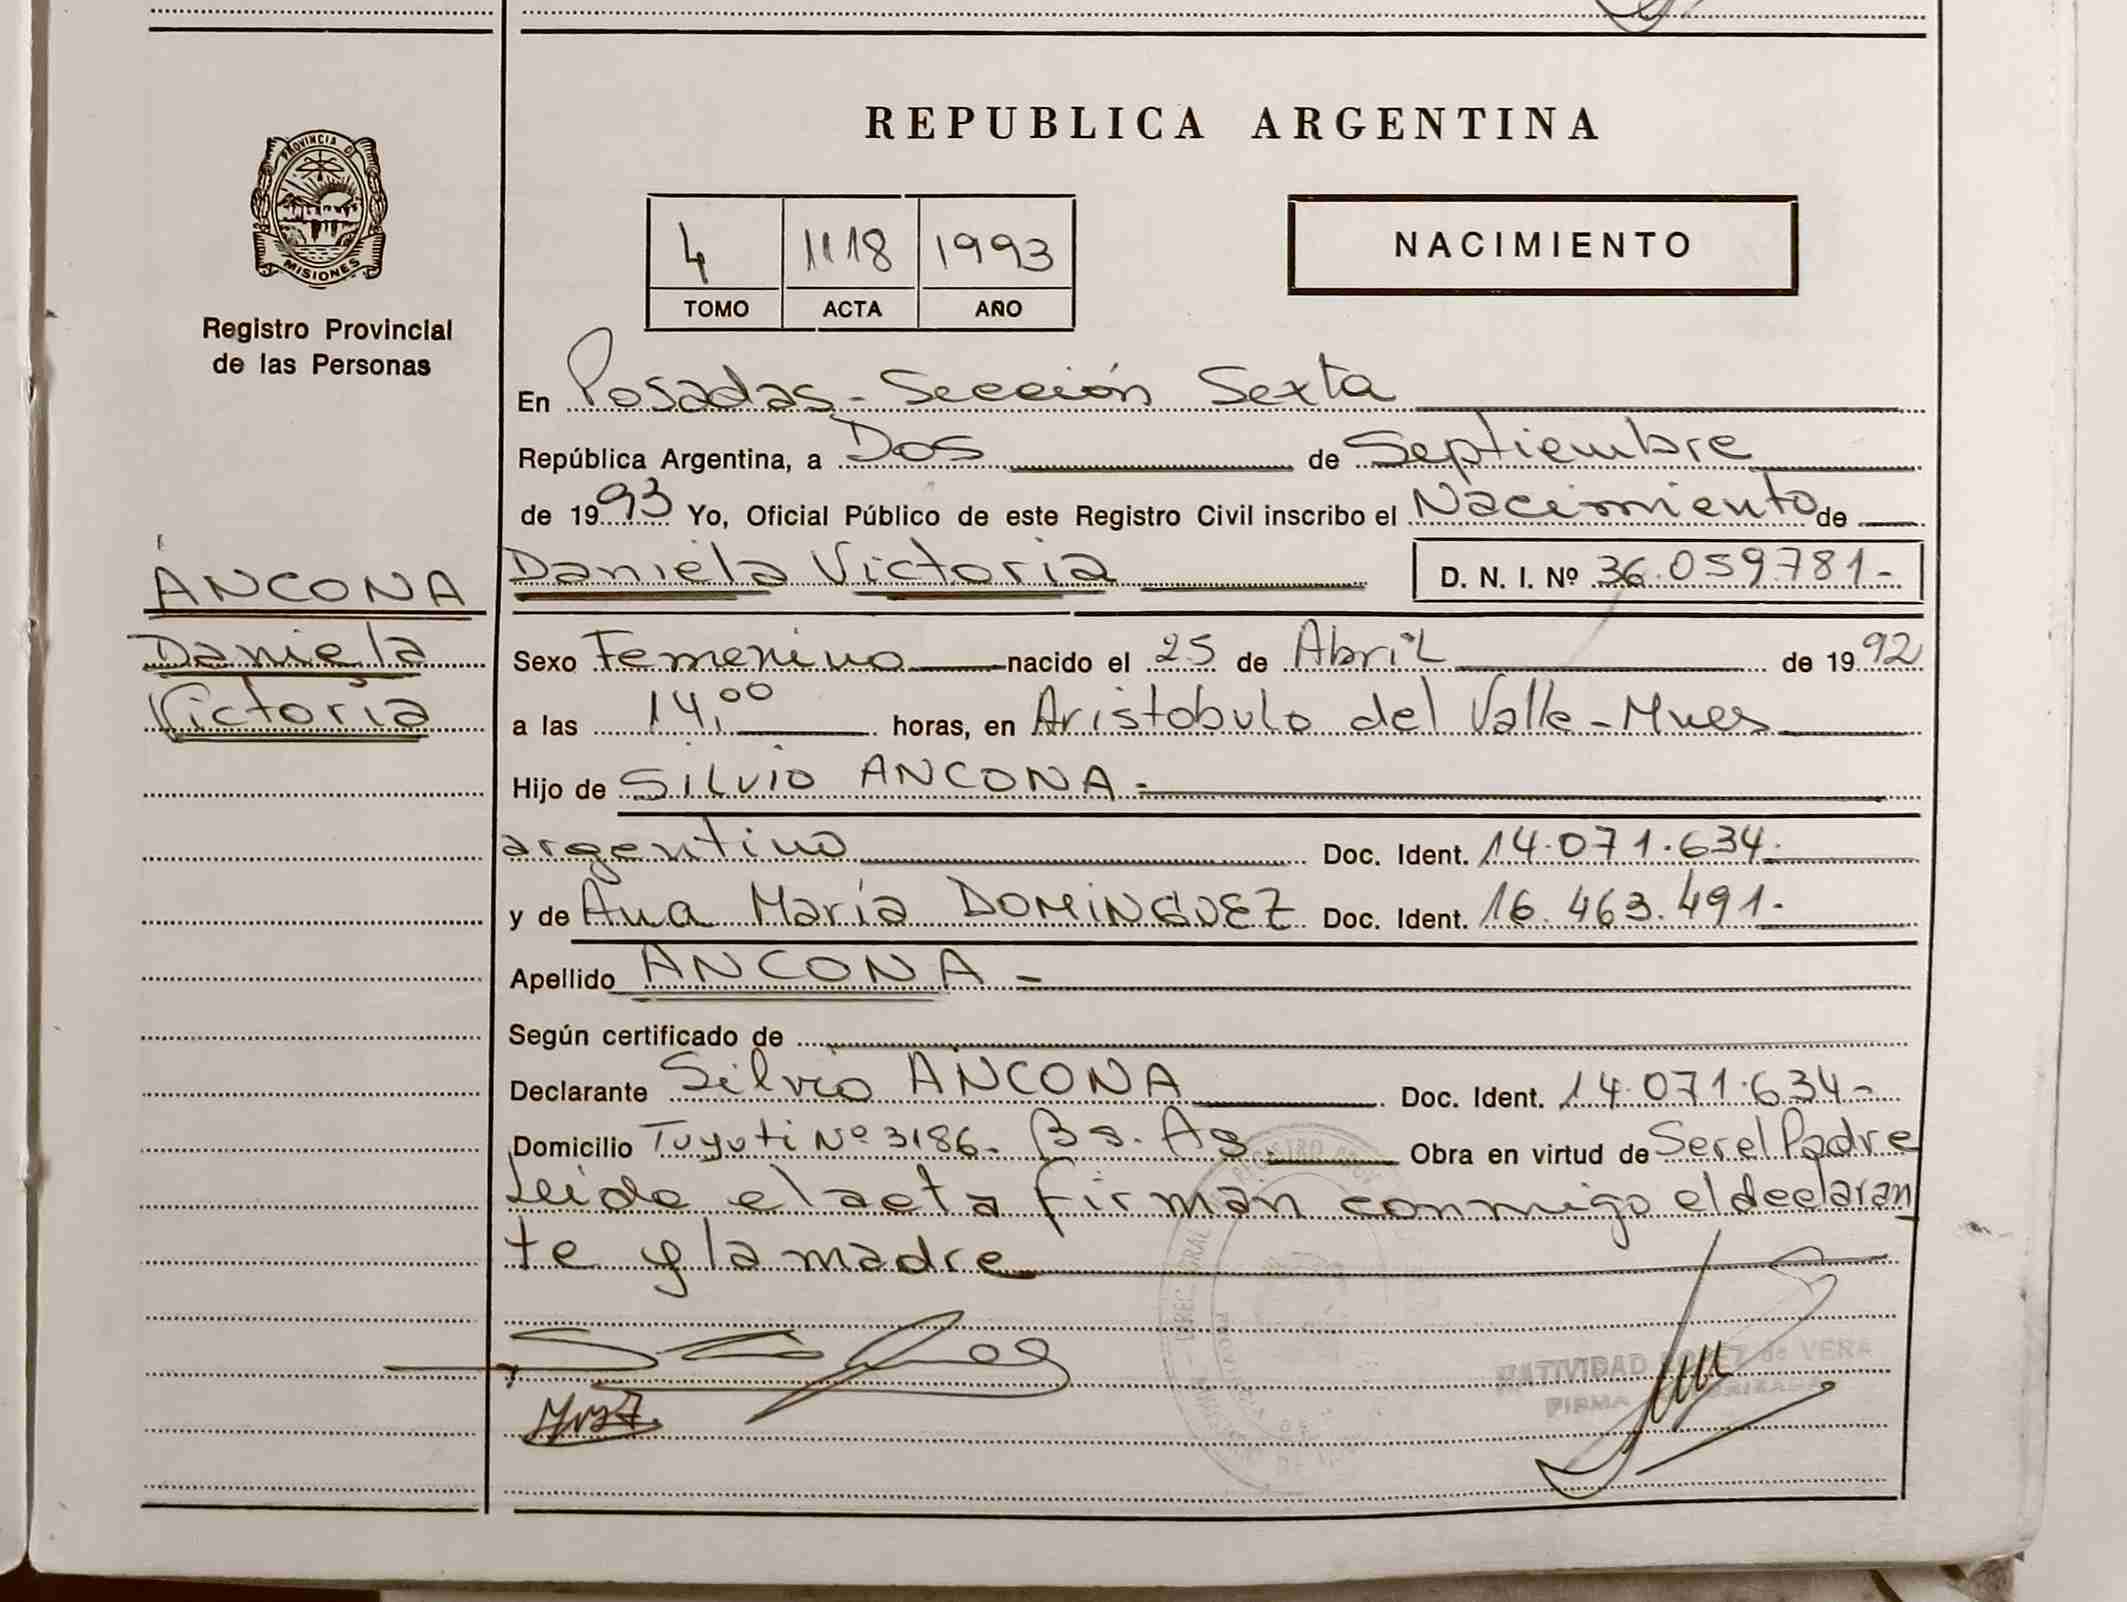 REPUBLICA ARGENTINA
PROVINCIA DE
MISIONES
Registro Provincial
de las Personas
4 1118 1993
TOMO ACTA AÑO
NACIMIENTO
En Posadas - Sección Sexta
República Argentina, a Dos de Septiembre
de 1993 Yo, Oficial Público de este Registro Civil inscribo el Nacimiento de
Daniela Victoria D. N. I. Nº 36.059.781-
ANCONA
Daniela
Victoria
Sexo Femenino nacido el 25 de Abril de 1992
a las 14,00 horas, en Aristobulo del Valle - Mnes
Hijo de Silvio ANCONA -
argentino Doc. Ident. 14.071.634.
y de Ana María DOMINGUEZ Doc. Ident. 16.463.491.
Apellido ANCONA -
Según certificado de
Declarante Silvio ANCONA Doc. Ident. 14.071.634-
Domicilio Tuyuti Nº 3186- Bs. As Obra en virtud de Ser el Padre
Leida el acta firman conmigo el declaran
te y la madre
NATIVIDAD de VERA
FIRMA